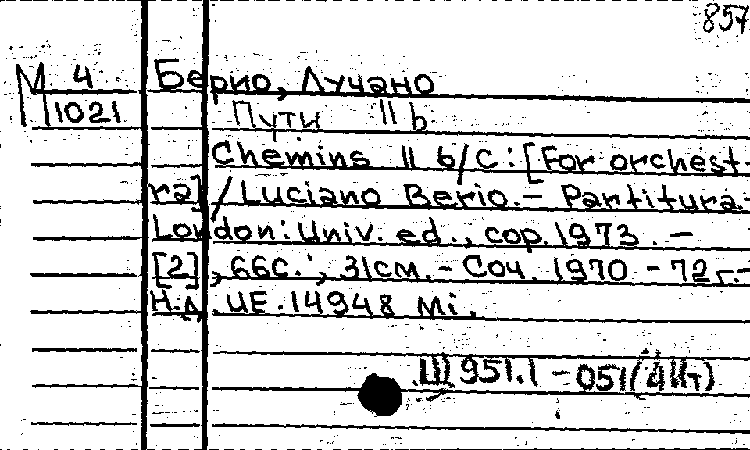 857
М 4 Берио, Лучано
1021 Пути II b
Chemins II b/c: [For orchest-
ra] / Luciano Berio. – Partitura. –
London: Univ. ed., cop. 1973. –
[2], 66с.; 31см. – Соч. 1970 – 72г. –
Н.д. UE. 14948 Mi.
Ш 951.1 – 051(4Ит)